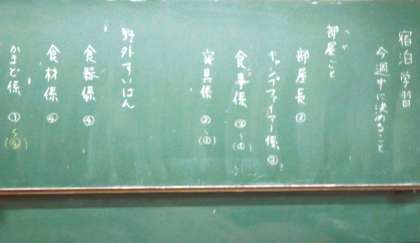 宿泊学習
今週中に決めること
部屋ごと
部屋長①
キャンプファイヤー係②
食事係
寝具係
野外すいはん
食器係④
食材係④
かまど係